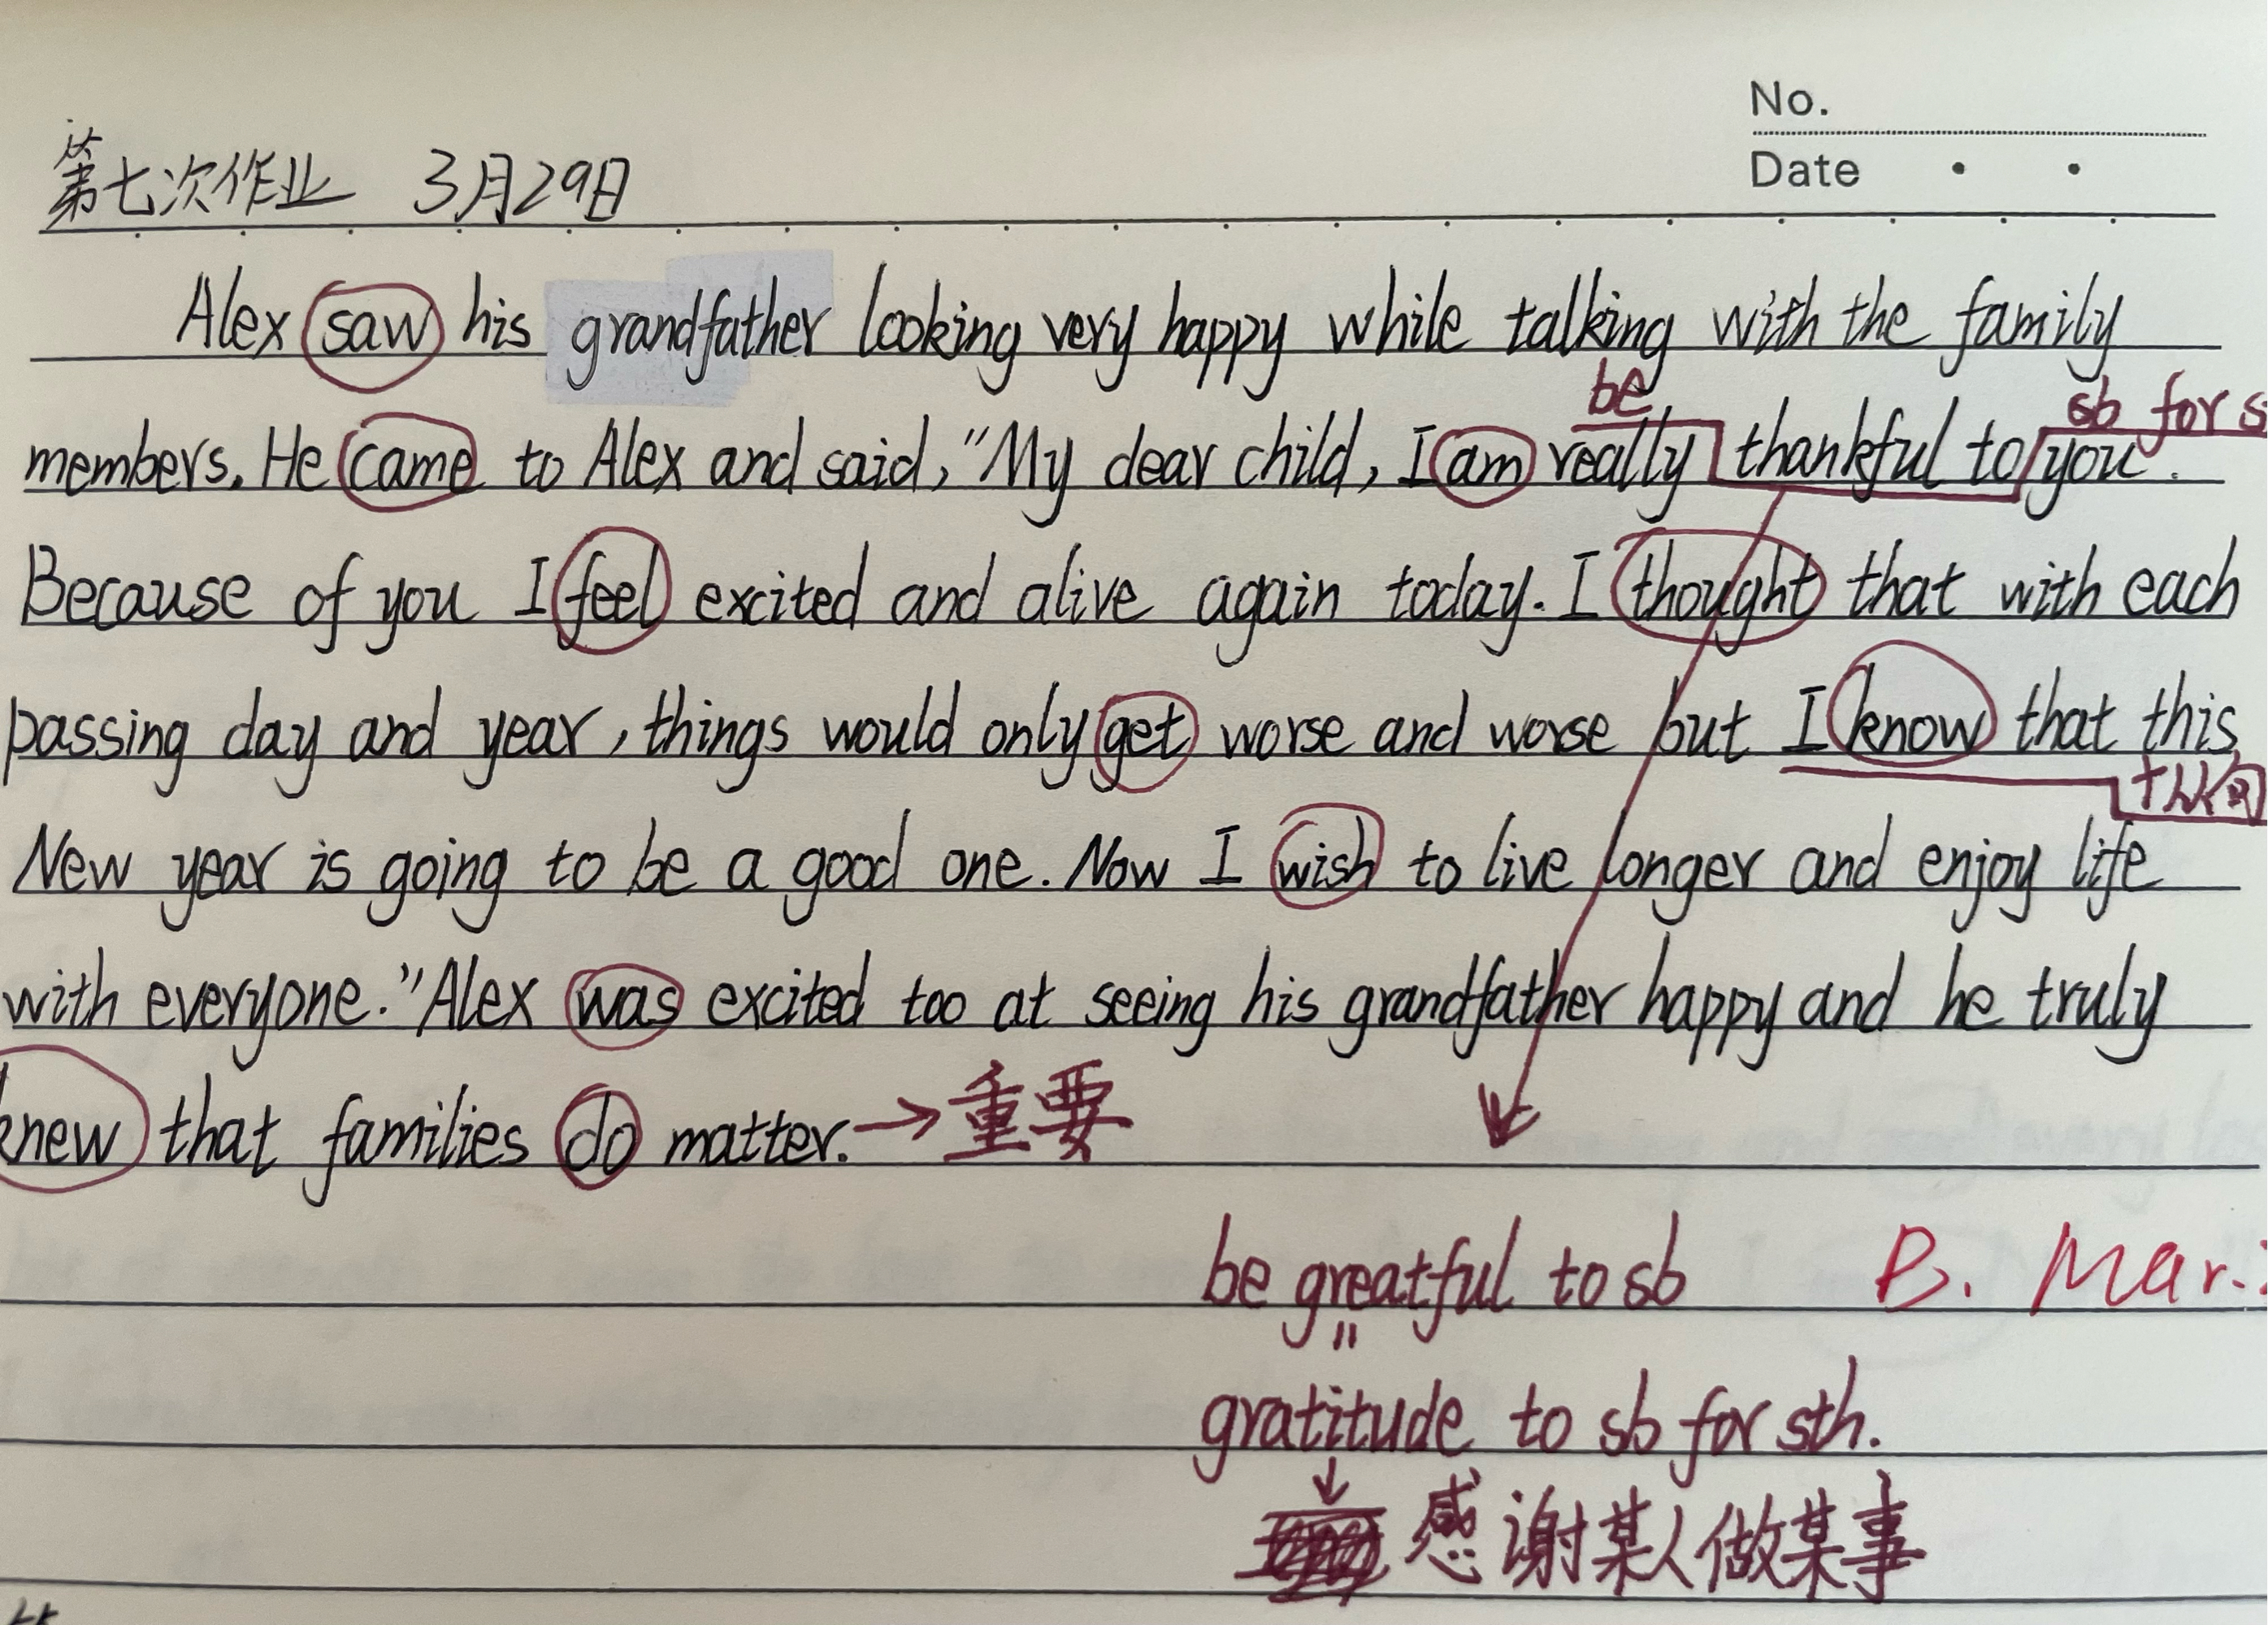 No.
Date
第七次作业 3月29日
Alex saw his grandfather looking very happy while talking with the family
be
sb for s
members. He came to Alex and said, "My dear child, I am really thankful to you".
Because of you I feel excited and alive again today. I thought that with each
passing day and year, things would only get worse and worse but I know that this
+从句
New year is going to be a good one. Now I wish to live longer and enjoy life
with everyone." Alex was excited too at seeing his grandfather happy and he truly
knew that families do matter. → 重要
be greatful to sb
B. Mar.
gratitude to sb for sth.
感谢某人做某事